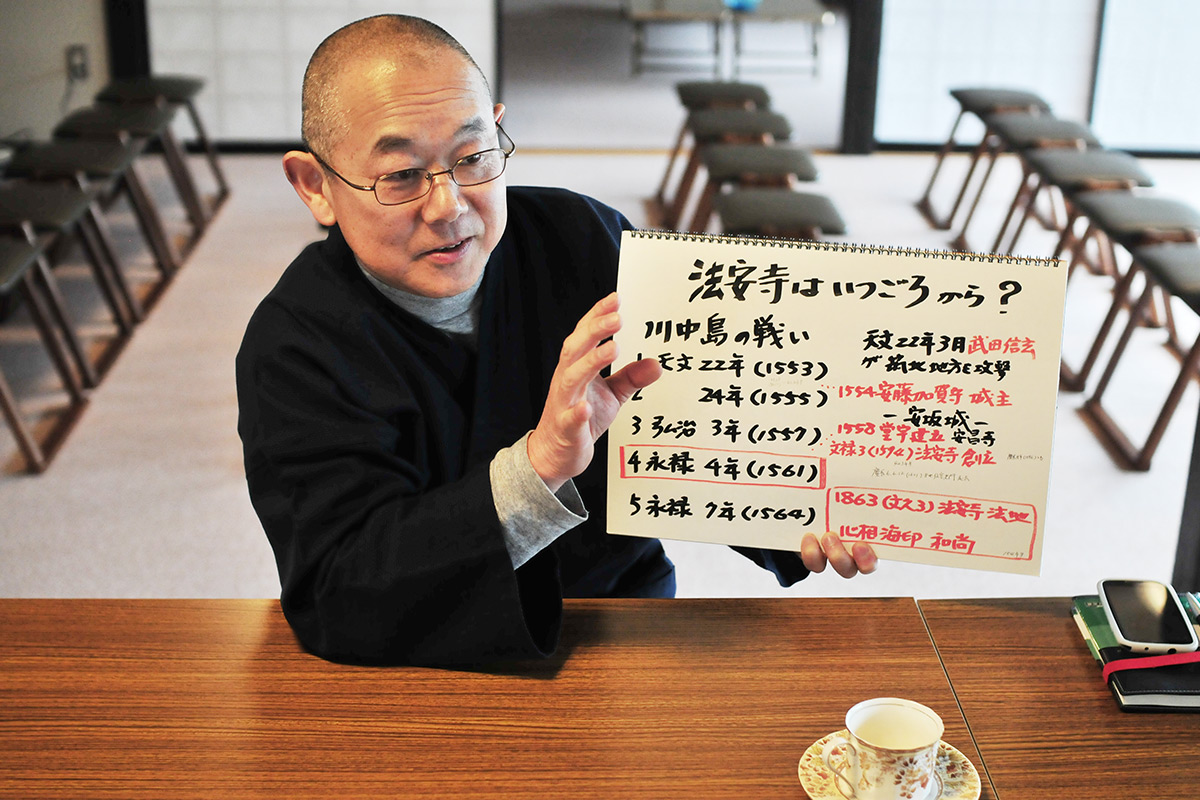 法安寺はいつごろから?
川中島の戦い
1 天文22年(1553)
2 24年(1555)
3 弘治 3年(1557)
4 永禄 4年(1561)
5 永禄 7年(1564)
天文22年3月武田信玄
が筑北地方を攻撃
1554安藤加賀守 城主
ー安坂城ー
1558堂宇建立 安昌寺
文禄3(1594)法安寺創立
1863(文久3)法安寺 法地
心相海印 和尚